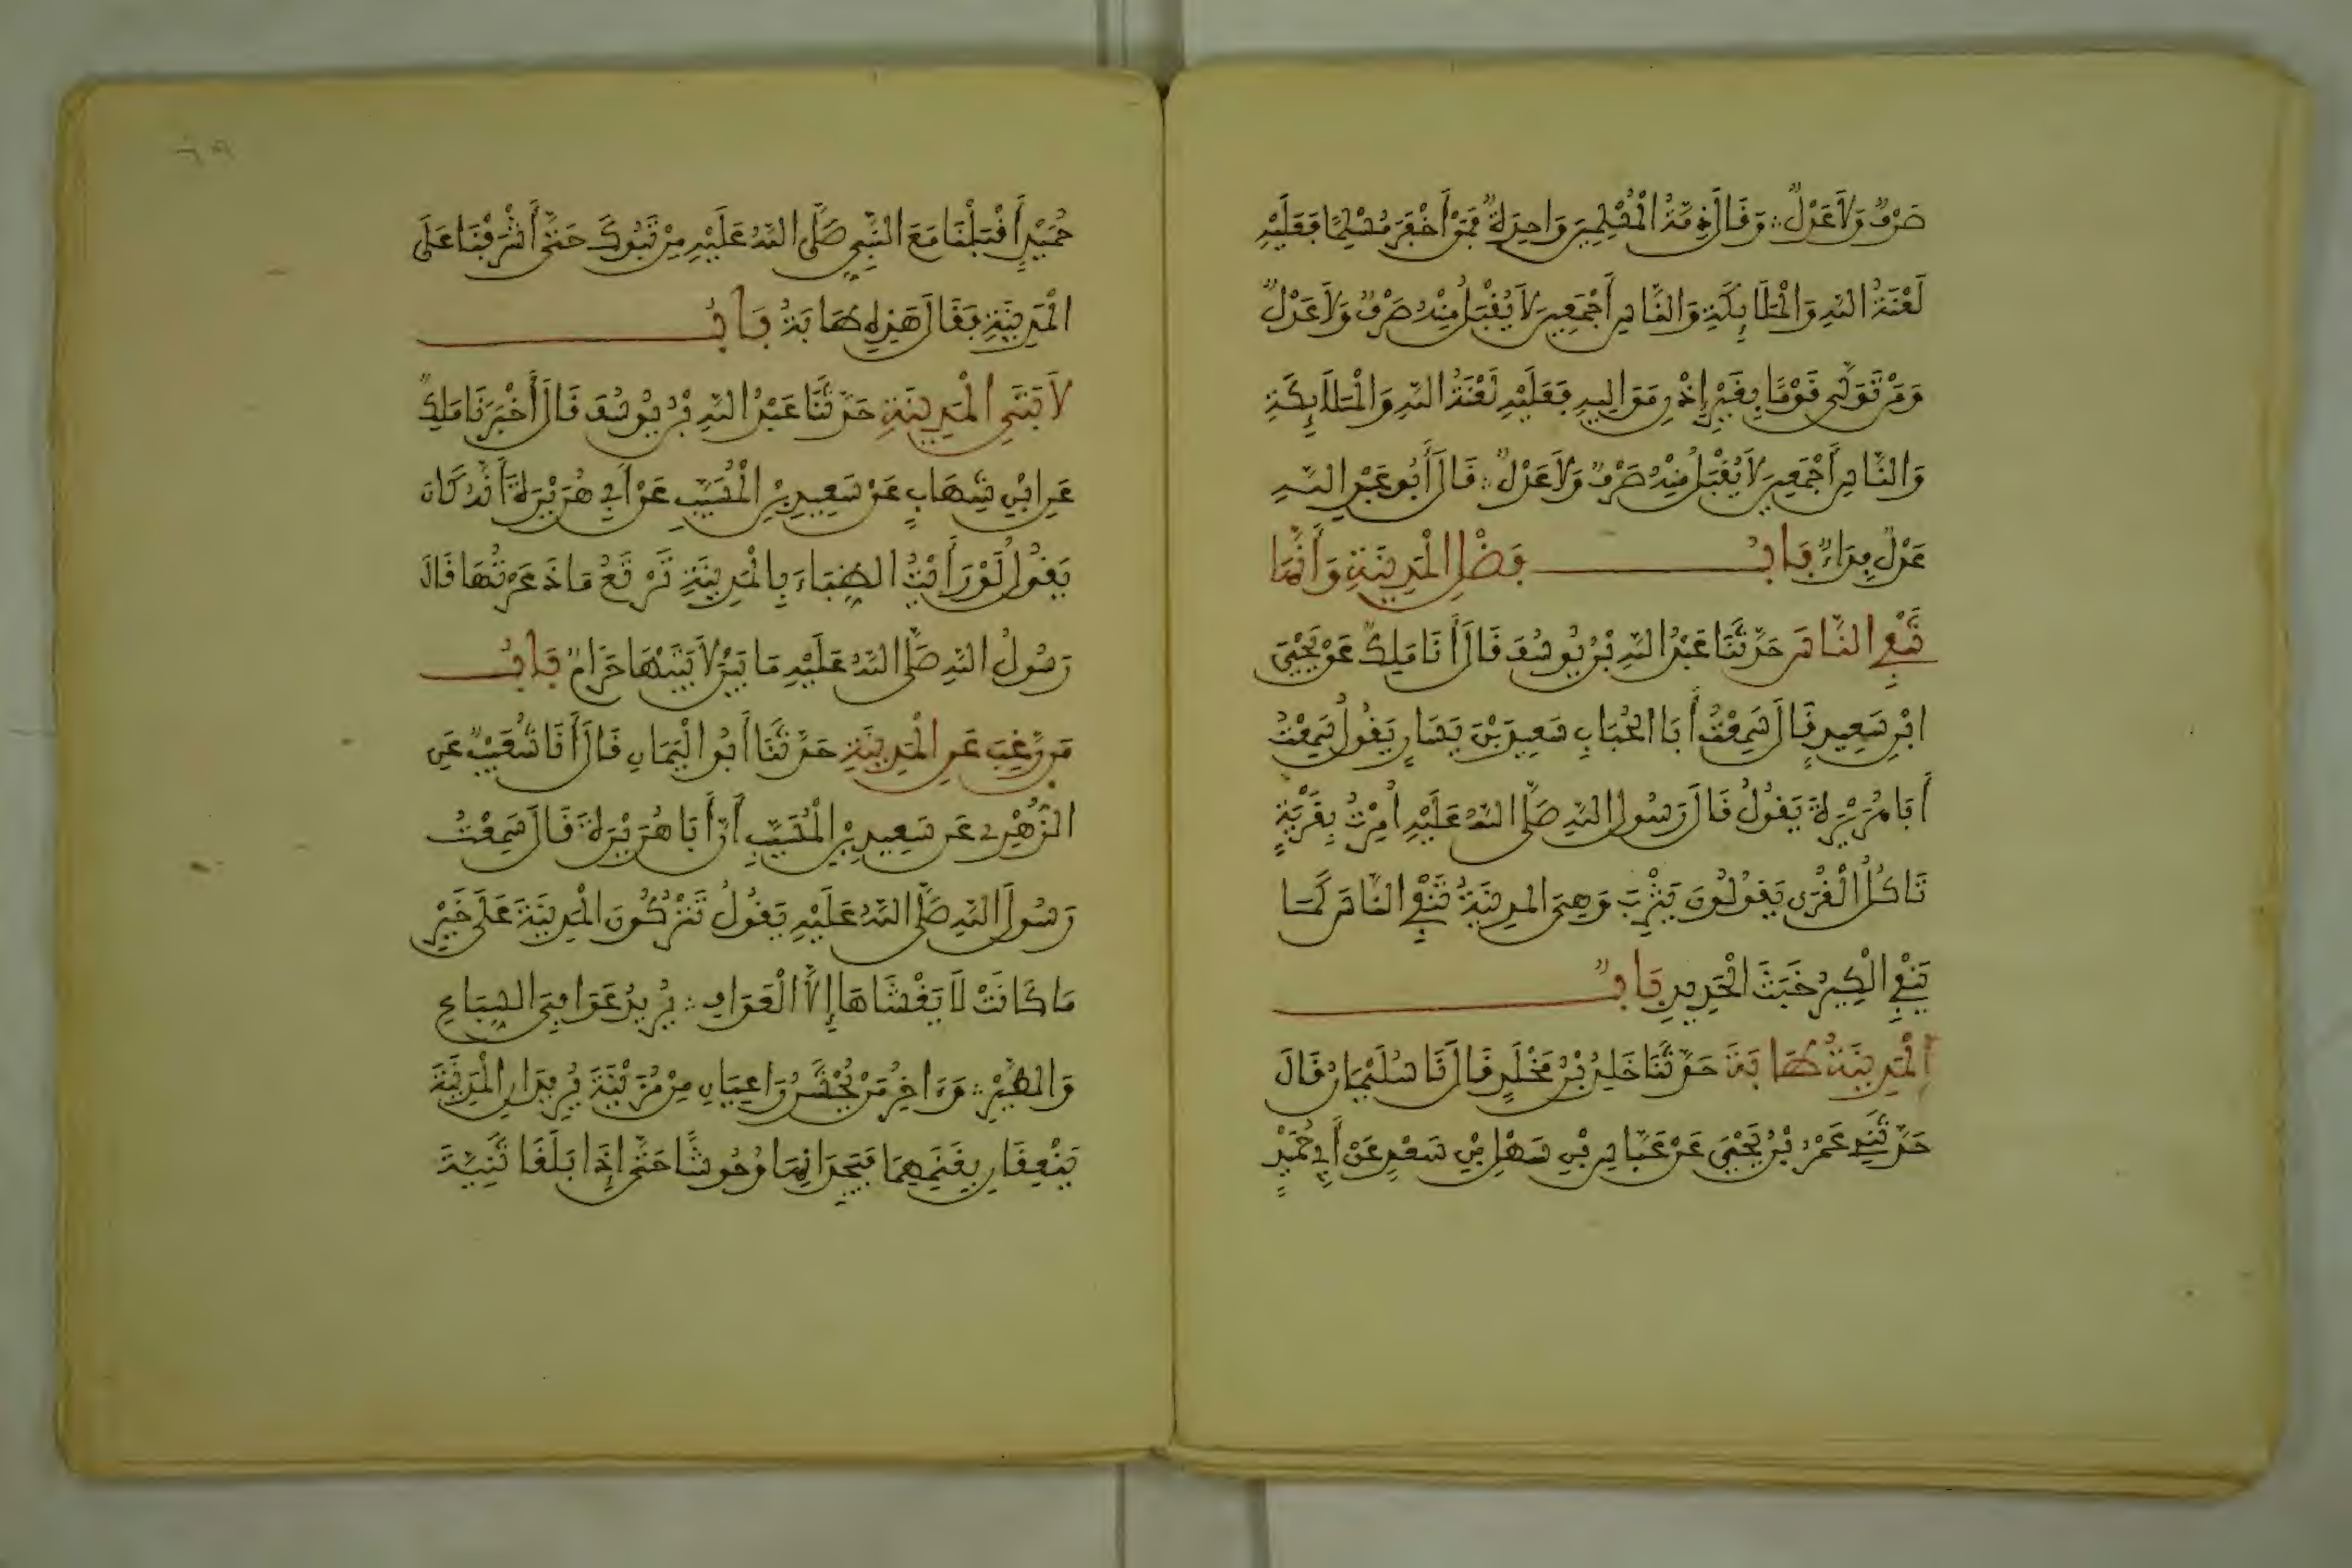 صَرْفٌ وَلَا عَدْلٌ ؞ وَقَالَ ذِمَّةُ الْمُسْلِمِينَ وَاحِدَةٌ فَمَنْ أَخْفَرَ مُسْلِمًا فَعَلَيْهِ
لَعْنَةُ اللَّهِ وَالْمَلَائِكَةِ وَالنَّاسِ أَجْمَعِينَ لَا يُقْبَلُ مِنْهُ صَرْفٌ وَلَا عَدْلٌ
وَمَنْ تَوَلَّى قَوْمًا بِغَيْرِ إِذْنِ مَوَالِيهِ فَعَلَيْهِ لَعْنَةُ اللَّهِ وَالْمَلَائِكَةِ
وَالنَّاسِ أَجْمَعِينَ لَا يُقْبَلُ مِنْهُ صَرْفٌ وَلَا عَدْلٌ ؞ قَالَ أَبُو عَبْدِ اللَّهِ
عَدْلٌ فِدَاءٌ بَابُ فَضْلِ الْمَدِينَةِ وَأَنَّهَا
تَنْفِي النَّاسَ حَدَّثَنَا عَبْدُ اللَّهِ بْنُ يُوسُفَ قَالَ أَنَا مَلِكٌ عَنْ يَحْيَى
ابْنِ سَعِيدٍ قَالَ سَمِعْتُ أَبَا الْحُبَابِ سَعِيدَ بْنَ يَسَارٍ يَقُولُ سَمِعْتُ
أَبَا هُرَيْرَةَ يَقُولُ قَالَ رَسُولُ اللَّهِ صَلَّى اللَّهُ عَلَيْهِ أُمِرْتُ بِقَرْيَةٍ
تَاكُلُ الْقُرَى يَقُولُونَ يَثْرِبَ وَهِيَ الْمَدِينَةُ تَنْفِي النَّاسَ كَمَا
يَنْفِي الْكِيرُ خَبَثَ الْحَدِيدِ بَابٌ
الْمَدِينَةُ طَابَةَ حَدَّثَنَا خَلِدُ بْنُ مَخْلَدٍ قَالَ نَا سُلَيْمَانُ قَالَ
حَدَّثَنِي عَمْرُ بْنُ يَحْيَى عَنْ عَبَّاسِ بْنِ سَهْلِ بْنِ سَعْدٍ عَنْ أَبِي حُمَيْدٍ
حُمَيْدٍ أَقْبَلْنَا مَعَ النَّبِيِّ صَلَّى اللَّهُ عَلَيْهِ مِنْ تَبُوكَ حَتَّى أَشْرَفْنَا عَلَى
الْمَدِينَةِ فَقَالَ هَذِهِ طَابَةُ بَابُ
لَابَتَيِ الْمَدِينَةِ حَدَّثَنَا عَبْدُ اللَّهِ بْنُ يُوسُفَ قَالَ أَخْبَرَنَا مَلِكٌ
عَنِ ابْنِ شِهَابٍ عَنْ سَعِيدِ بْنِ الْمُسَيِّبِ عَنْ أَبِي هُرَيْرَةَ أَنَّهُ كَانَ
يَقُولُ لَوْ رَأَيْتُ الظِّبَاءَ بِالْمَدِينَةِ تَرْتَعُ مَا ذَعَرْتُهَا قَالَ
رَسُولُ اللَّهِ صَلَّى اللَّهُ عَلَيْهِ مَا بَيْنَ لَابَتَيْهَا حَرَامٌ بَابُ
مَن رَّغِبَ عَنِ الْمَدِينَةِ حَدَّثَنَا أَبُو الْيَمَانِ قَالَ أَنَا شُعَيْبٌ عَنِ
الزُّهْرِي عَن سَعِيدِ بْنِ الْمُسَيِّبِ أَنَّ أَبَا هُرَيْرَةَ قَالَ سَمِعْتُ
رَسُولَ اللَّهِ صَلَّى اللَّهُ عَلَيْهِ يَقُولُ تَتْرُكُونَ الْمَدِينَةَ عَلَى خَيْرِ
مَا كَانَتْ لَا يَغْشَاهَا إِلَّا الْعَوَافِ ؞ يُرِيدُ عَوَافِيَ السِّبَاعِ
وَالطَّيْرِ ؞ وَءَاخِرُ مَنْ يُحْشَرُ رَاعِيَانِ مِنْ مُزَيْنَةَ يُرِيدَانِ الْمَدِينَةَ
يَنْعِقَانِ بِغَنَمِهِمَا فَيَجِدَانِهَا وُحُوشًا حَتَّى إِذَا بَلَغَا ثَنِيَّةَ